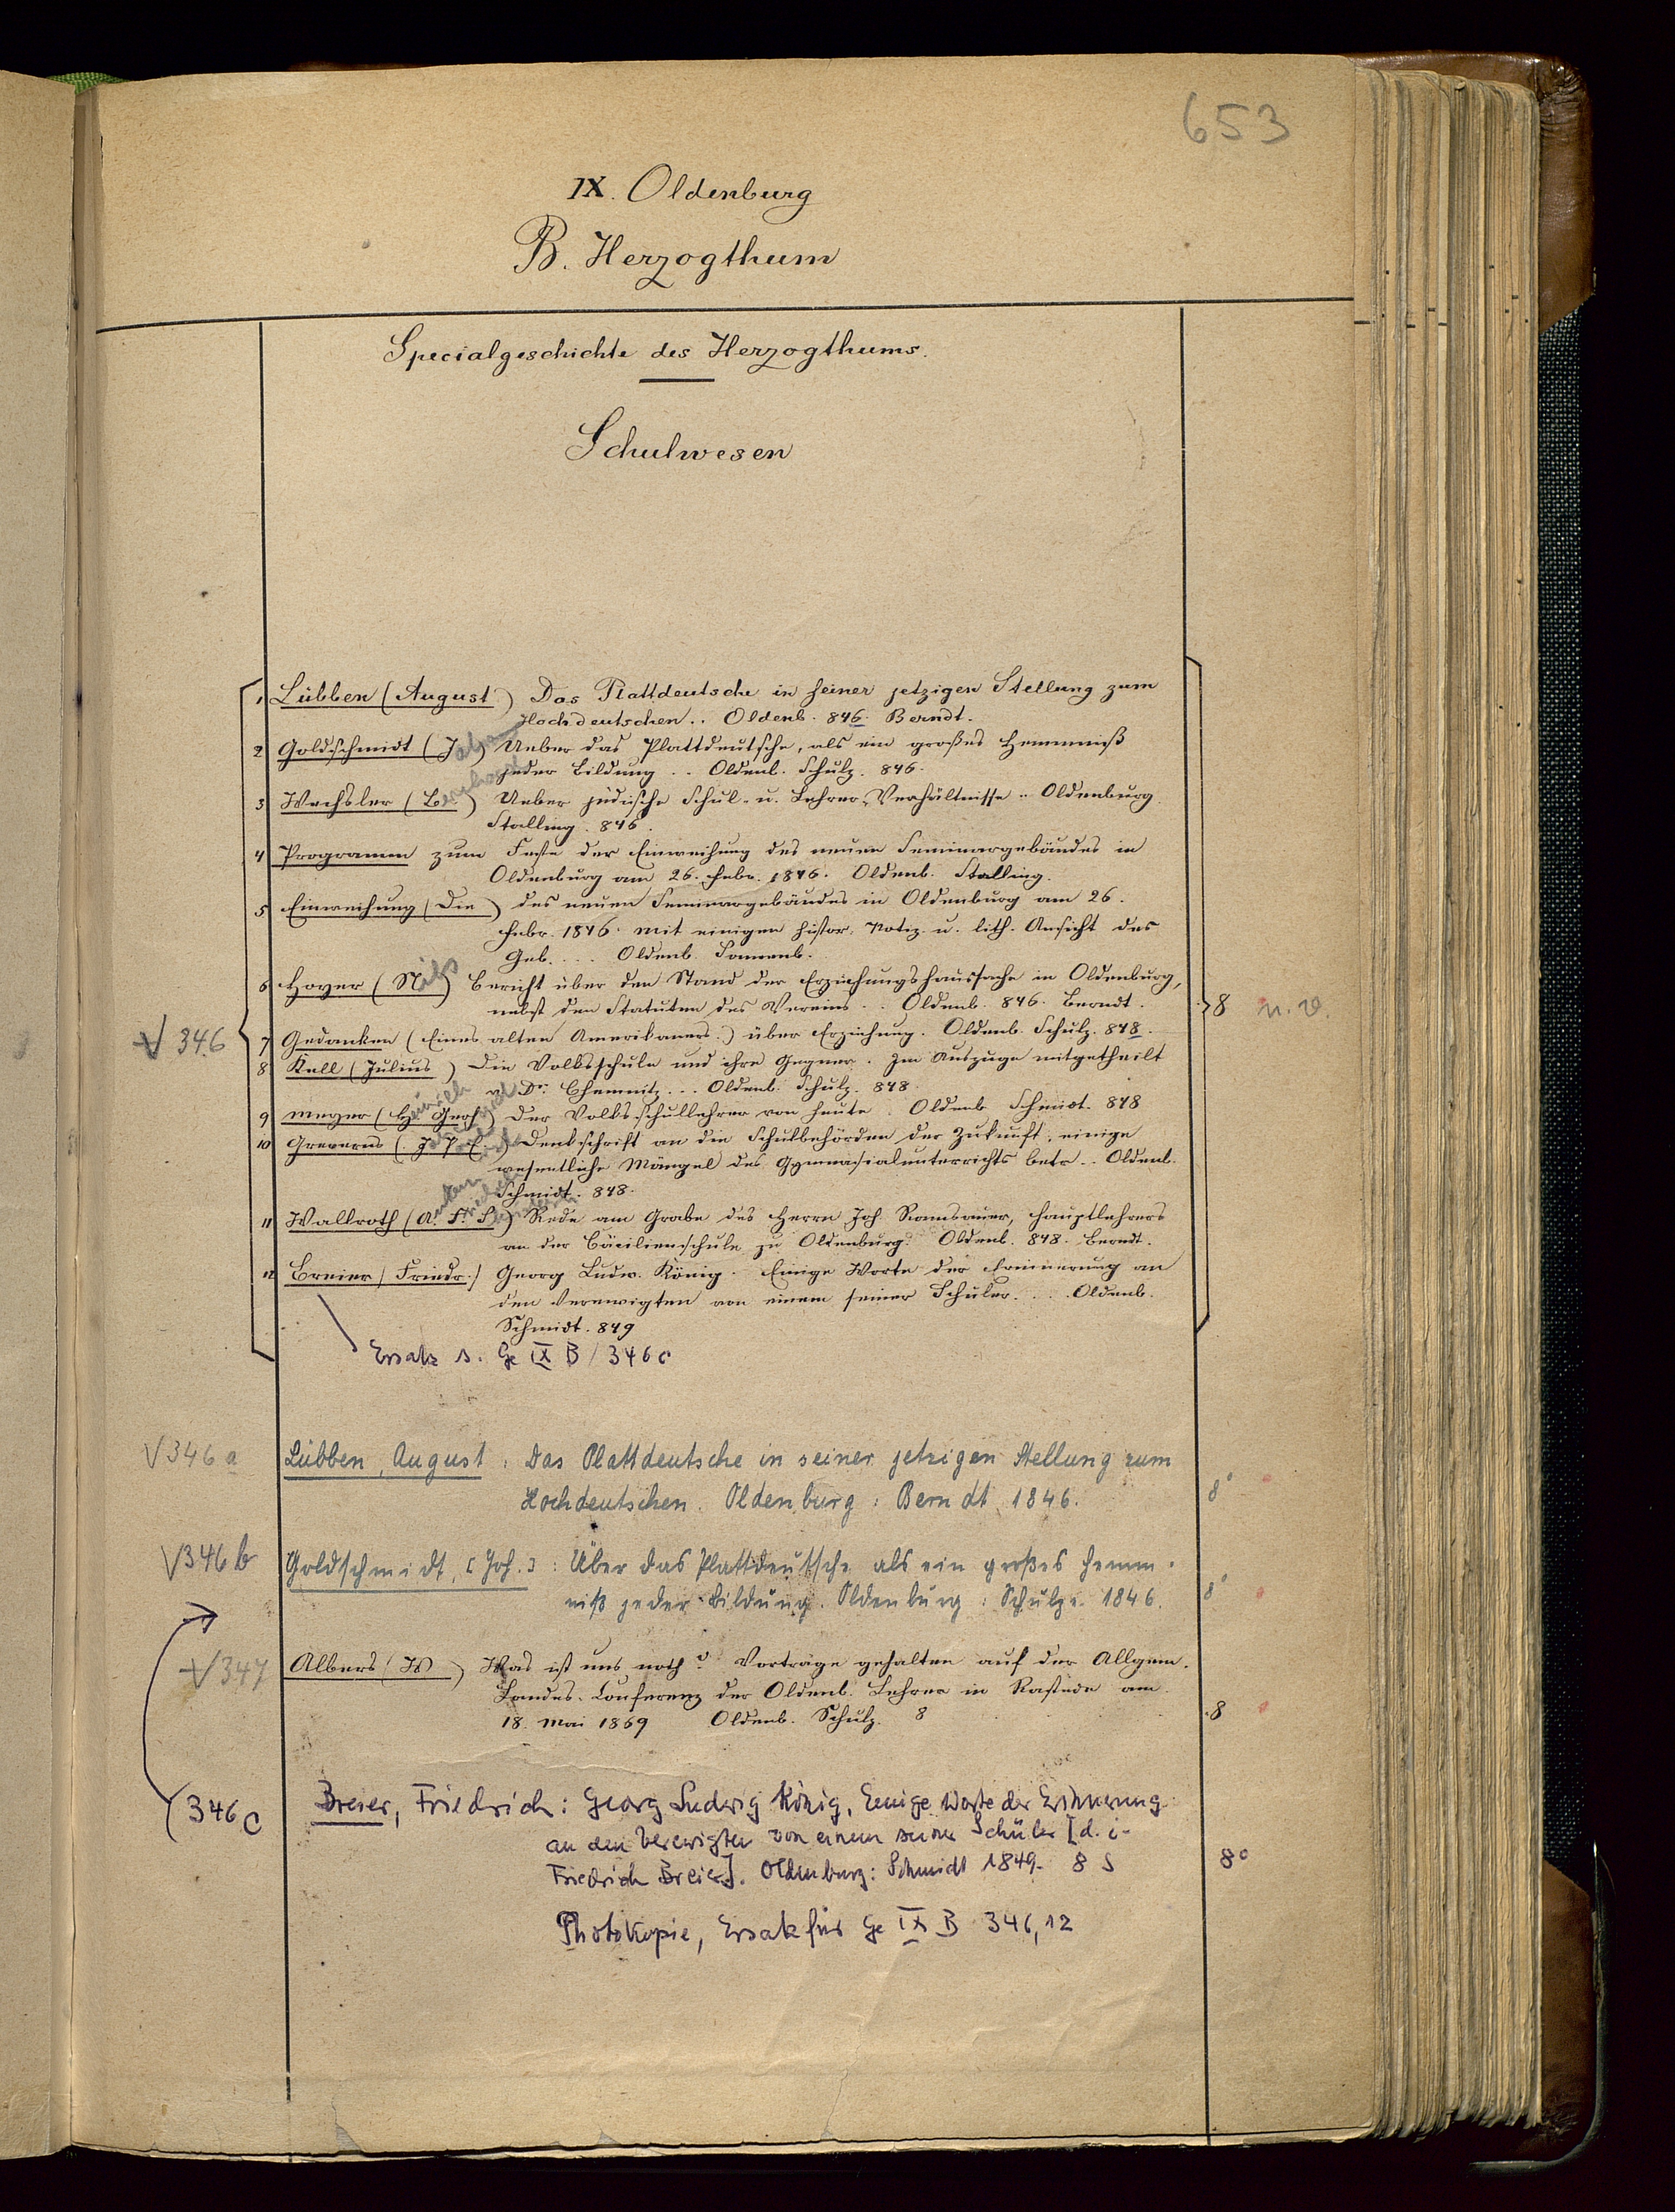 653
IX. Oldenburg
B. Herzogthum
Specialgeschichte des Herzogthums.
Schulwesen
√ 346
1 Lübben (August) Das Plattdeutsche in seiner jetzigen Stellung zum
Hochdeutschen.. Oldenb. 846. Berndt.
2 Goldschmidt (J) Ueber das Plattdeutsche, als ein großes Hemmniß
jeder Bildung .. Oldenb. Schulz. 846.
3 Wechsler (Bernhard) Ueber jüdische Schul- u. Lehrer-Verhältnisse .. Oldenburg
Stalling. 846.
4 Programm zum Feste der Einweihung des neuen Seminargebäudes in
Oldenburg am 26. Febr. 1846. Oldenb. Stalling.
5 Einweihung (Die) des neuen Seminargebäudes in Oldenburg am 26.
Febr. 1846. mit einigen histor. Notiz. u. lith. Ansicht des
Geb. ... Oldenb.
6 Hoyer (Nils) Bericht über den Stand der Erziehungshaussache in Oldenburg,
nebst den Statuten des Vereins .. Oldenb. 846. Berndt.
8 n. v.
7 Gedanken (Eines alten Amerikaners.) über Erziehung. Oldenb. Schulz. 848.
8 Kell (Julius) Die Volksschule und ihre Gegner. Im Auszuge mitgetheilt
v. Dr. Chemnitz... Oldenb. Schulz. 848
9 Meyer (Heinrich Gerh) Der Volksschullehrer von heute. Oldenb Schmidt. 848
10 Greverus (J. P. E.) Denkschrift an die Schulbehörden der Zukunft, einige
wesentliche Mängel des Gymnasialunterrichts betr.. Oldenb.
Schmidt. 848.
11 Wallroth (A. F. S) Rede am Grabe des Herrn Joh. Ramsauer, Hauptlehrers
an der Cäcilienschule zu Oldenburg. Oldenb. 848. Berndt.
12 Breier (Friedr.) Georg Ludw. König. Einige Worte der Erinnerung an
den Verewigten von einem seiner Schüler. ... Oldenb.
Schmidt. 849
Ersatz s. Ge IX B / 346 c
√ 346 a Lübben, August: Das Plattdeutsche in seiner jetzigen Stellung zum
Hochdeutschen. Oldenburg: Berndt 1846. 8°
√ 346 b Goldschmidt, [Joh.]: Über das Plattdeutsche als ein großes Hemm-
niß jeder Bildung. Oldenburg: Schulze 1846. 8°
√ 347 Albers (W) Was ist uns noth? Vorträge gehalten auf der Allgem.
Landes-Conferenz der Oldenb. Lehrer in Rastede am
18. Mai 1869 Oldenb. Schulz. 8 8
346 c Breier, Friedrich: Georg Ludwig König, Einige Worte der Erinnerung
an den Verewigten von einem seiner Schüler [d. i.
Friedrich Breier]. Oldenburg: Schmidt 1849. 8 S 8°
Photokopie, Ersatz für Ge IX B 346,12